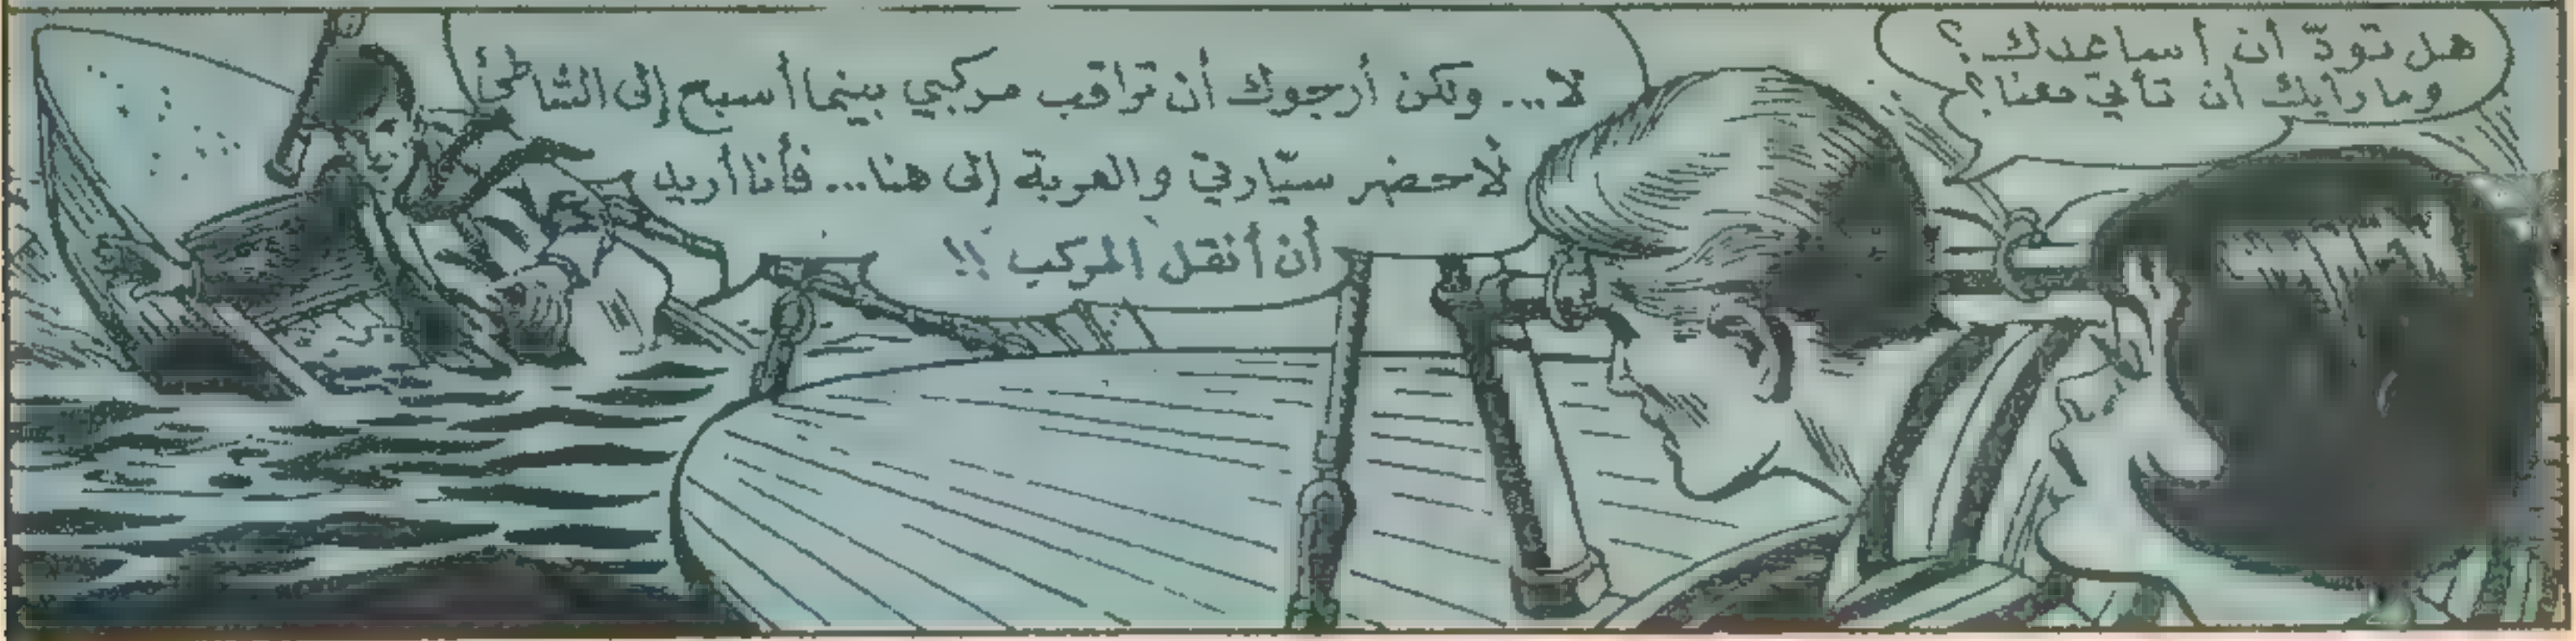 هل تودّ أن أساعدك؟
وما رأيك أن تأتي معنا؟
لا... ولكن أرجوك أن تراقب مركبي بينما أسبح إلى الشاطئ
لأحضر سيّارتي والعربة إلى هنا... فأنا أريد
أن أنقل المركب!!